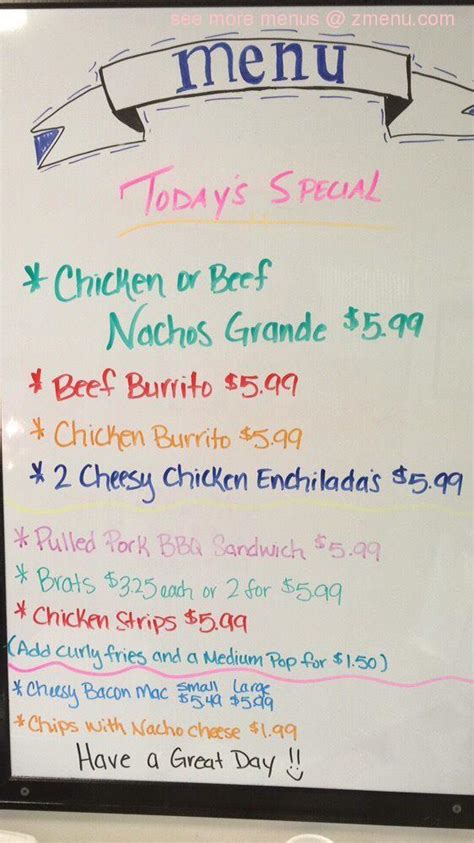 see more menus @ zmenu.com
menu
TODAY'S SPECIAL
* Chicken or Beef
Nachos Grande $5.99
* Beef Burrito $5.99
* Chicken Burrito $5.99
* 2 Cheesy Chicken Enchilada's $5.99
* Pulled Pork BBQ Sandwich $5.99
* Brats $3.25 each or 2 for $5.99
* Chicken Strips $5.99
(Add curly fries and a Medium Pop for $1.50)
* Cheesy Bacon Mac small $5.49 Large $5.99
* Chips with Nacho cheese $1.99
Have a Great Day !!